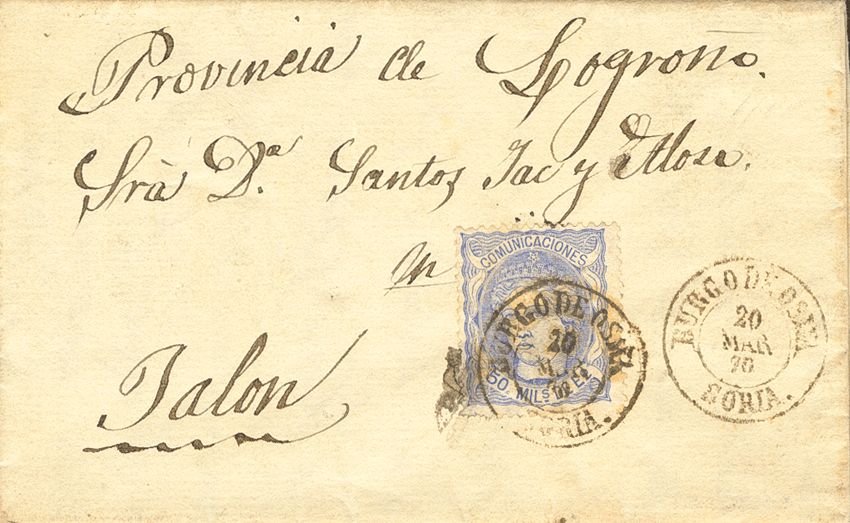 Provincia de Logroño.
Srà Dª. Santos Jac y Alosa.
en
Jalon
COMUNICACIONES
50 MILS. DE E.
BURGO DE OSMA
20
MAR
SORIA.
BURGO DE OSMA
20
MAR
70
SORIA.